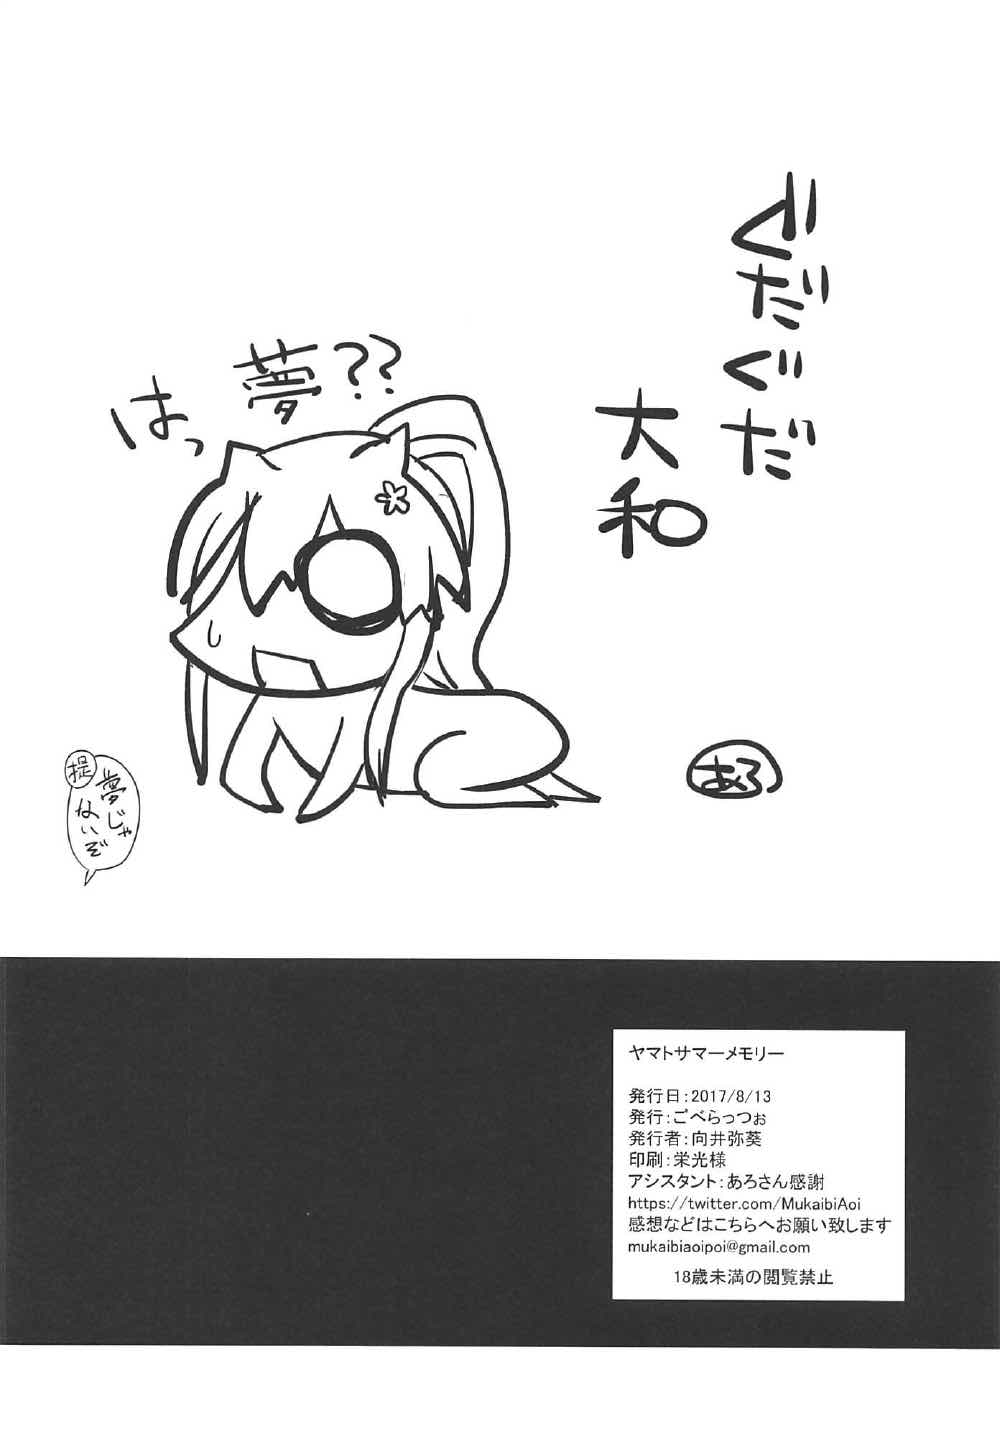 ぐだぐだ
大和
夢??
はっ
あろ
提
夢じゃ
ないぞ
ヤマトサマーメモリー
発行日：2017/8/13
発行：ごべらっつぉ
発行者：向井弥葵
印刷：栄光様
アシスタント：あろさん感謝
https://twitter.com/MukaibiAoi
感想などはこちらへお願い致します
mukaibiaoipoi@gmail.com
18歳未満の閲覧禁止